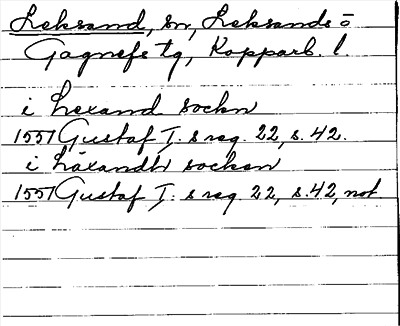 Leksand, sn, Leksands o
Gagnefs tg, Kopparb. l
i Lexand sockn
1551 Gustaf I:s reg. 22, s. 42.
i Läxandh socken
1551 Gustaf I:s reg. 22, s. 42, not